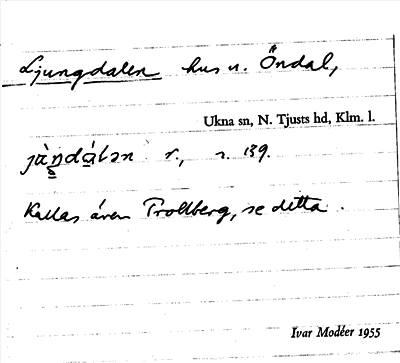 Ljungdalen hus u. Öndal,
Ukna sn, N. Tjusts hd, Klm. l.
r., s. 139.
Kallas även Trollberg, se ditta.
Ivar Modéer 1955